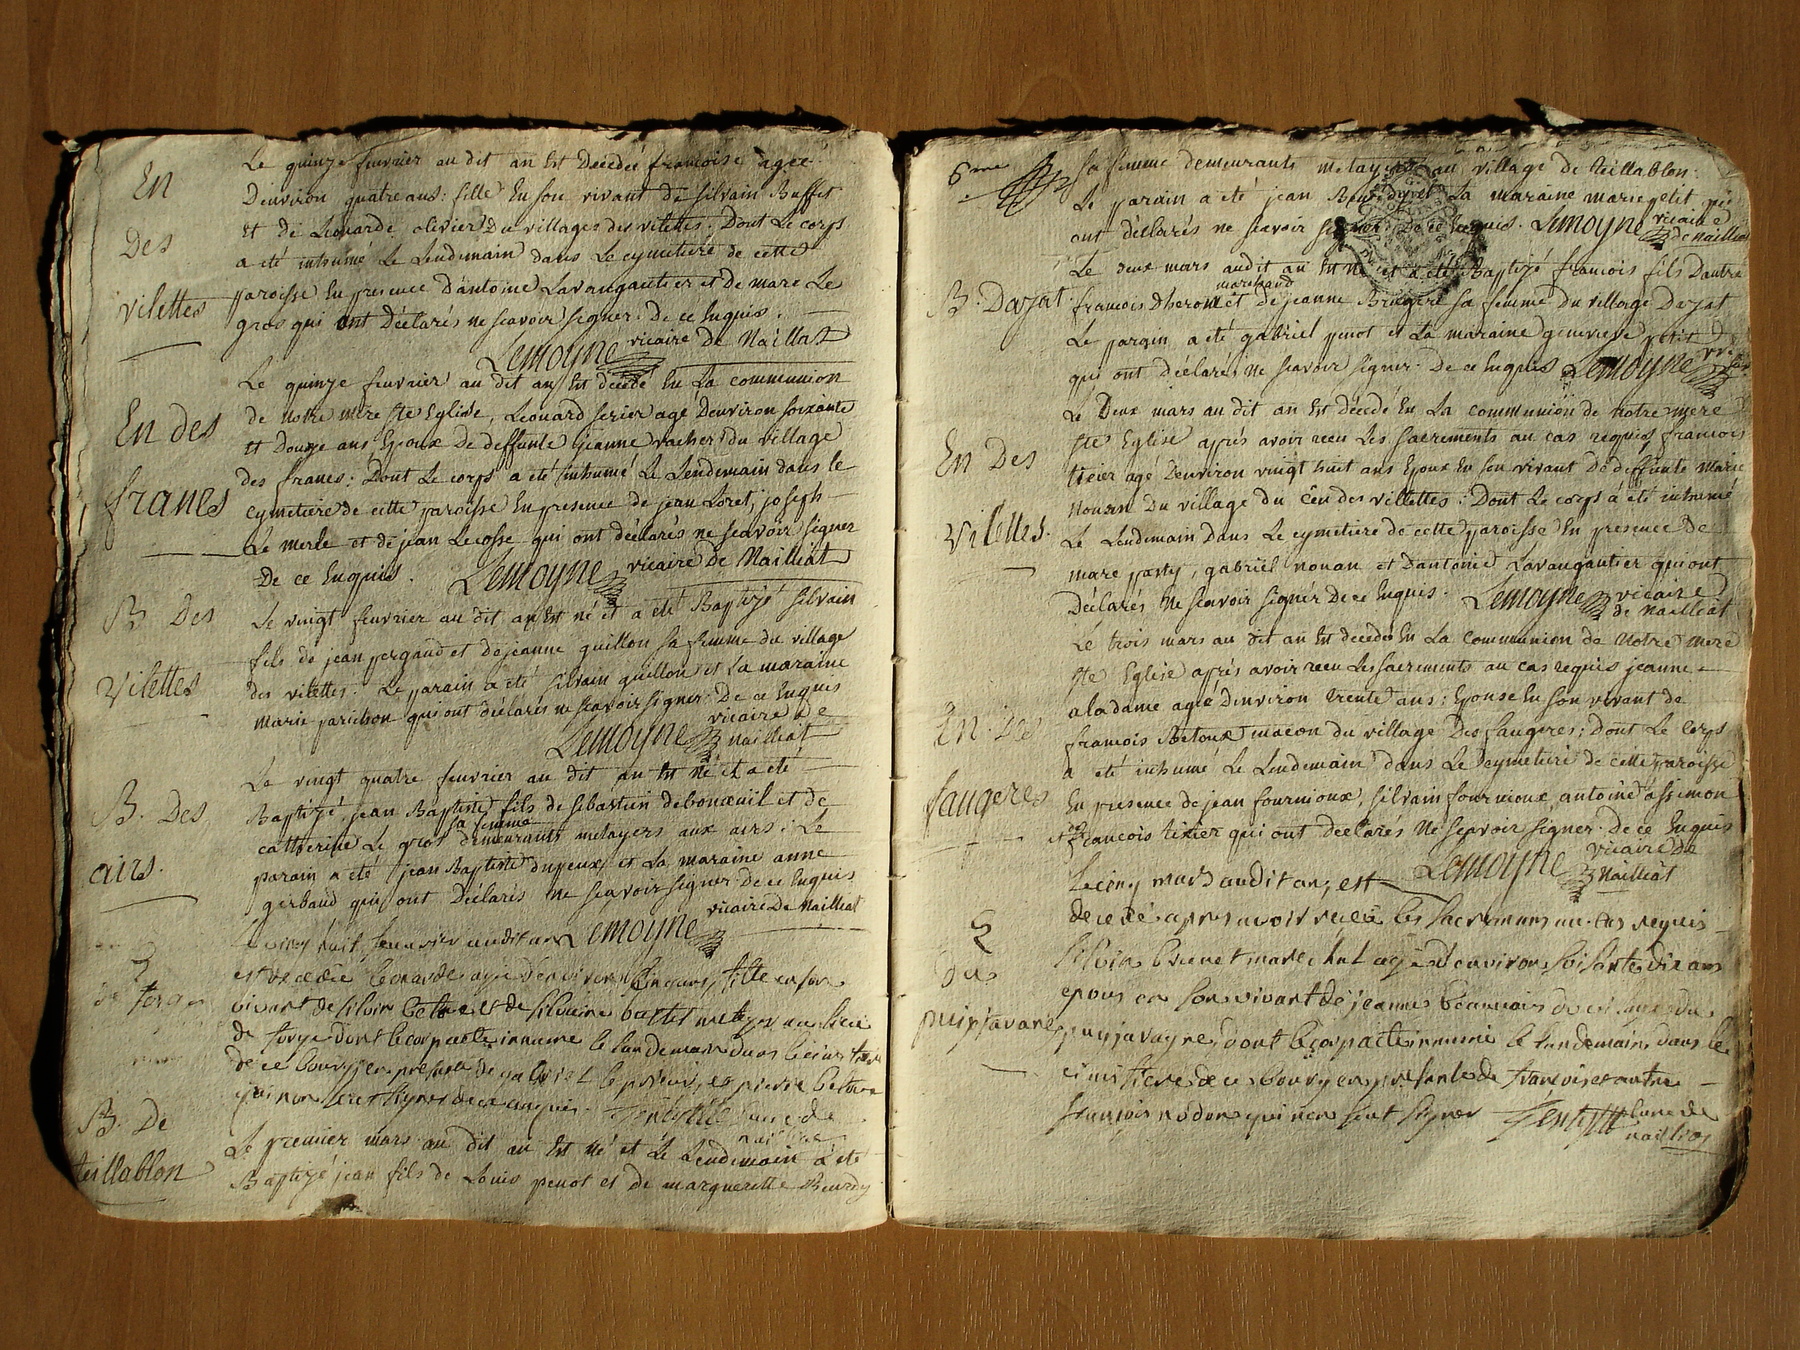 En
Des
vilettes
Le quinze feuvrier au dit an Est Décédée françoise agée
Denviron quatre ans : fille En son vivant de silvain Buffet
Et de Leonarde olivier Du villages des vilettes. Dont Le corps
a été inhumé Le Lendemain dans Le cymetiere de cette
paroisse En presence d'antoine Lavaugautier et de marc Le
gros qui ont Déclarés ne scavoir signer. De ce Enquis.
Lemoyne vicaire de Naillat
En des
franes
Le quinze feuvrier au dit an Est décédé En La communion
de notre mere ste Eglise, Leonard serier agé Denviron soixante
Et Douze ans Epoux De deffunte jeanne vacher du village
des franes : Dont Le corps a été inhumé Le Lendemain dans le
cymetiere de cette paroisse En presence de jean Loret, joseph
Le merle et de jean Lecosse qui ont déclarés ne scavoir signer
De ce Enquis. Lemoyne vicaire De Nailliat
B Des
vilettes
Le vingt feuvrier au dit an Est né et a été Baptizé silvain
fils de jean pergaud et de jeanne guillon sa femme du village
des vilettes. Le parain a été silvain guillon et La maraine
marie parichon qui ont déclarés ne scavoir signer. De ce Enquis
Lemoyne vicaire de
Nailliat
B. Des
airs.
Le vingt quatre feuvrier au dit an Est né et a été
Baptizé jean Baptiste fils de sebastien debonœuil et de
sa femme
catherine Le gros demeurants metayers aux airs : Le
parain a été jean Baptiste dupeux et La maraine anne
gerbaud qui ont Déclarés ne scavoir signer. de ce Enquis
Lemoyne vicaire De Nailliat
vingt huit feuvrier audit an
est decedée leonarde agée d'environ ans, fille en son
vivant de silvin et de silvaine metayer au lieu
de forge dont le corp a eté innumé le landemain dans le
de ce bourg en presance de gabriel le prieur, et pierre
qui non seut signer de ce enquis. curé de
B. De
teillablon
Le premier mars au dit an Est né et Le Lendemain a été
Baptizé jean fils de Louis penot et de marguerette Bourdy
6me
sa femme demeurants metayers au village de teillablon.
Le parain a été jean La maraine marie petit qui
ont déclarés ne scavoir signer De ce Enquis. Lemoyne vicaire
de nailliat
B. Dazat
Le deux mars audit an Est né et a été Baptizé francois fils Dautre
marchand
francois Dheron et de jeanne Brugere sa femme du village Dazat
Le parain a été gabriel penot et La maraine genevieve petit
qui ont déclarés ne scavoir signer. De ce Enquis Lemoyne
En Des
vilettes.
Le Deux mars au dit an Est décédé En La communion de notre mere
ste Eglise aprés avoir recu Les sacrements au cas requis francois
tixier agé Denviron vingt huit ans Epoux En son vivant De deffunte marie
nouan Du village du des villettes : Dont Le corps a été inhumé
Le Lendemain Dans Le cymetiere de cette paroisse En presence De
marc party, gabriel nouan et Dantoine Lavaugautier qui ont
Déclarés ne scavoir signer De ce Enquis. Lemoyne vicaire
de nailliat
En des
faugeres
Le trois mars au dit an Est decedée En La communion de notre mere
ste Eglise aprés avoir recu Les sacrements au cas requis jeanne
aladame agée Denviron trente ans : Epouse En son vivant de
francois Betoux macon du village Des faugeres ; Dont Le corps
a été inhumé Le Lendemain dans Le cymetiere de cette paroisse
En presence de jean fournioux, silvain fournioux, antoine assimon
et de francois tixier qui ont declarés ne scavoir signer. de ce Enquis
Lemoyne vicaire De
Nailliat
Du
puipjavane
Le cinq mars audit an, est
decedé apres avoir receu les sacremans au cas requis
silvin brunet marechal agé d'environ soisante dix ans
epous en son vivant de jeanne beauvais du vilage du
puyjavayne, dont le corp a eté innumé le landemain dans le
cimitiere de ce bourg en presante de francois et autre
françois nadon, qui non seut signer curé de